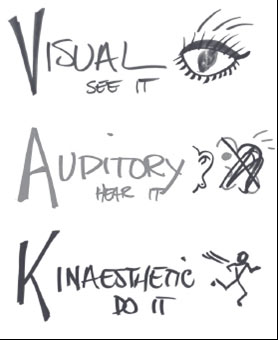 VISUAL
SEE IT
AUDITORY
HEAR IT
KINAESTHETIC
DO IT